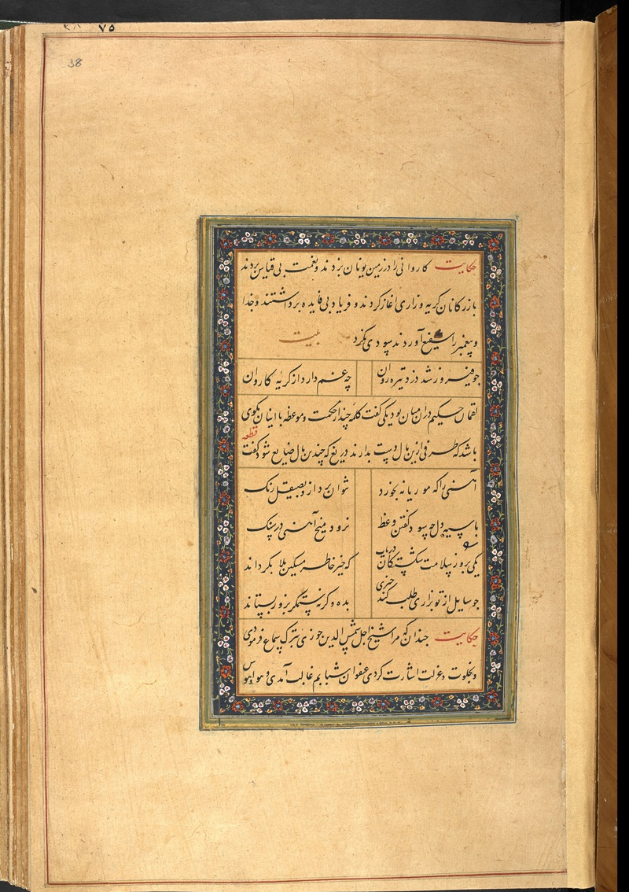 ۷۵
38
حکایت کاروانی را در زمین یونان بزدند و نعمت بی قیاس بردند
بازرکانان کریه و زاری اغاز کردند و فریاد بی فایده برداشتند و خدا
و پیغمبر را شفیع آوردند سود می نکرد بیت
چو فیروز شد دزد تیره روان چه غم دارد از کریهٔ کاروان
لقمان حکیم دران میان بود یکی گفت کلمهٔ چند از حکمت و موعظه با اینان بکوی
باشد که طرفی ازین مال دست بدارند دریغ که چندین مال ضایع شود گفت
قطعه
آهنی را که موریانه بخورد نتوان برد ازو بصیقل زنک
با سیه دل چه سود گفتن وعظ نرود میخ آهنی در سنک
بروز سلامت شکستکان دریاب که خیر خاطر مسکین بلا بکرداند
چو سایل از تو بزاری طلب کند چیزی بده و کرنه ستمکر بزور بستاند
حکایت چندان که مرا شیخ اجل شمس الدین جوزی بترک سماع فرمودی
و بخلوت و عزلت اشارت کردی عنفوان شبابم غالب آمدی و هوا و هوس